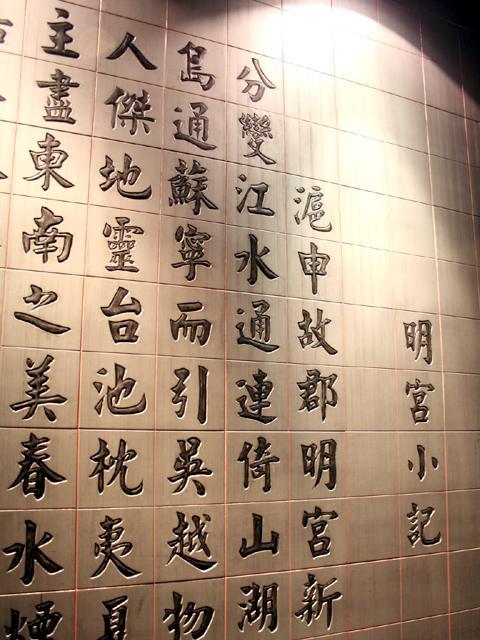 明宮小記
滬申故郡明宮新
分變江水通連倚山湖
島通蘇寧而引吳越物
人傑地靈台池枕夷夏
主盡東南之美春水煙